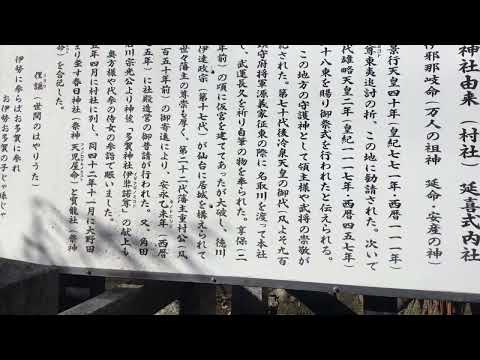 神社由来(村社)延喜式内社
伊邪那岐命(万人の祖神 延命・安産の神)
景行天皇四十年(皇紀七七一年・西暦一一一年)
尊東夷追討の折、この地に勧請された。次いで
代雄略天皇二年(皇紀一一一七年・西暦四五七年)
十八束を賜り御祭式を行われたと伝えられる。
この地方の守護神として領主様や武将の崇敬が
記された。第七十代後冷泉天皇の御代(凡よそ九百
鎮守府将軍源義家征東の際に名取川を渡って本社
し、武運長久を祈り自筆の物を奉られた。享保(二
年前)の頃に仮宮を建ててあったが大破し、徳川
伊達政宗(第十七代)が仙台に居城を構えられて
世々藩主の尊崇も厚く、第二十二代藩主重村公(凡
百五十年前)の御寄進により、安永乙未年(西暦
五年)に社殿造営の御普請が行われた。又、角田
石川宗光公より神號「多賀神社伊弉諾尊」の献上も
奥方様や代参の侍女の参詣で賑いました。
五年四月に村社に列し、同四十二年十一月に大野田
より並す春日神社(祭神 天児屋命)と實龍社(祭神
命)を合祀した。
俚謡(世間のはやりうた)
伊勢に参らばお多賀に参れ
お伊勢お多賀の子じゃ孫じゃ